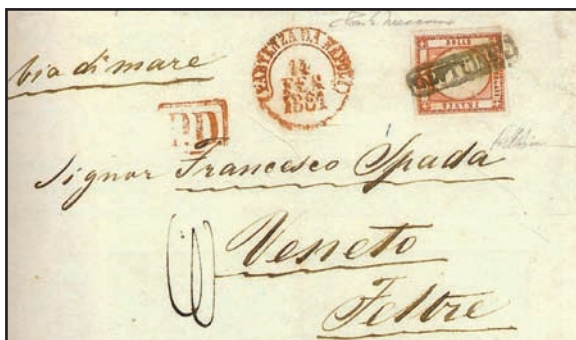 Via di mare
PARTENZA DA NAPOLI
14
FEB
1861
BOLLO
ANNULLATO
P.D.
Signor Francesco Spada
Veneto
Feltre